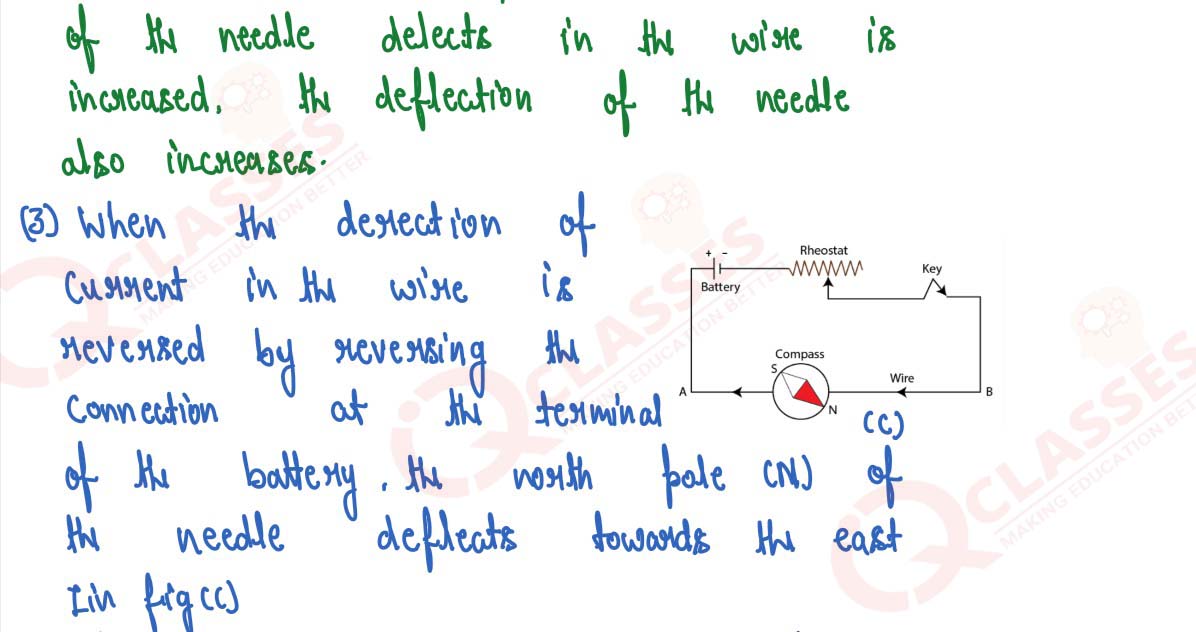 of the needle delects in the wire is
increased, the deflection of the needle
also increases.
(3) When the derection of
Current in the wire is
reversed by reversing the
Connection at the terminal
of the battery, the north pole (N) of
the needle deflects towards the east
Iin fig (c)
+ -
Battery
Rheostat
Key
Compass
S
N
A
Wire
B
(c)
CLASSES
MAKING EDUCATION BETTER
CLASSES
MAKING EDUCATION BETTER
CLASSES
MAKING EDUCATION BETTER